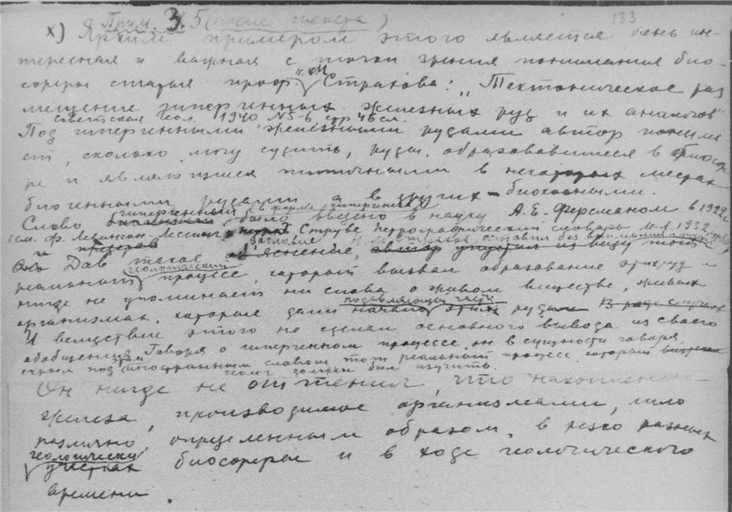 Прим. 3.5 (после текста) 133
х) Ярким примером этого является очень ин-
тересная и важная с точки зрения понимания био-
сферы статья проф. Н.М. Страхова: "Тектоническое раз
мещение гипергенных железных руд и их аналогов"
Советская Геол. 1940 N5-6 стр 46 сл.
Под гипергенными железными рудами автор понима
ет, сколько могу судить, руды, образовавшиеся в биосфе
ре и являющиеся типичными в некоторых местах
биогенными рудами а в других - биокосными.
Слово гипергенный в форме было введено в науку А.Е. Ферсманом в 1922 г.
(см. Ф. Левинсон-Лессинг Струве Петрографический словарь М.Л. 1932
Дав такое объяснение, Н.М. Страхов оставил без внимания тот
реальный геологический процесс, который вызвал образование этих руд и
нигде не упоминает ни слова о живом веществе, живых
организмах, которые дали подавляющую часть этих рудам
И вследствие этого не сделал основного вывода из своего
обобщения. Говоря о гипергенном процессе, он в сущности говоря,
скрыл под иностранным словом тот реальный процесс, который
геолог должен был изучить.
Он нигде не оттенил, что накопление
железа, производимое организмами, шло
различно определенным образом, в резко разных
геологически участках биосферы и в ходе геологического
времени.